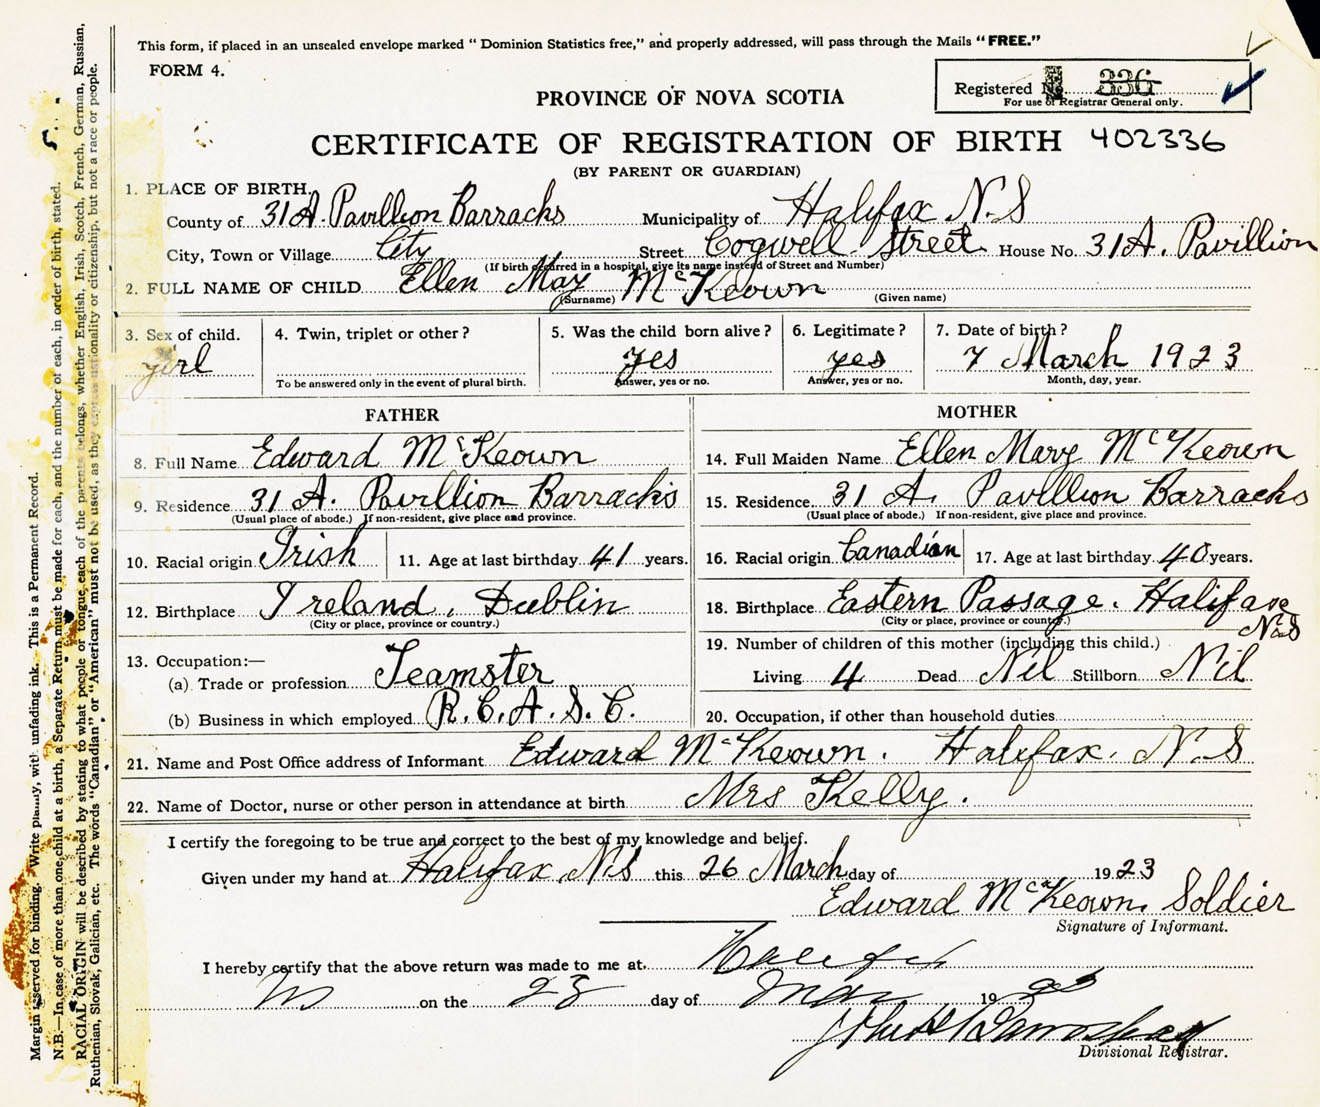 This form, if placed in an unsealed envelope marked "Dominion Statistics free," and properly addressed, will pass through the Mails "FREE."
FORM 4.
Registered No. 336
For use of Registrar General only.
PROVINCE OF NOVA SCOTIA
CERTIFICATE OF REGISTRATION OF BIRTH 402336
(BY PARENT OR GUARDIAN)
1. PLACE OF BIRTH.
County of 31 A. Pavillion Barracks Municipality of Halifax N.S
City, Town or Village City Street Cogwell Street House No. 31 A. Pavillion
(If birth occurred in a hospital, give its name instead of Street and Number)
2. FULL NAME OF CHILD Ellen May McKeown
(Surname) (Given name)
3. Sex of child. girl
4. Twin, triplet or other?
To be answered only in the event of plural birth.
5. Was the child born alive? yes
Answer, yes or no.
6. Legitimate? yes
Answer, yes or no.
7. Date of birth? 7 March 1923
Month, day, year.
FATHER
8. Full Name Edward McKeown
9. Residence 31 A. Pavillion Barracks
(Usual place of abode.) If non-resident, give place and province.
10. Racial origin Irish 11. Age at last birthday 41 years.
12. Birthplace Ireland, Dublin
(City or place, province or country.)
13. Occupation:—
(a) Trade or profession Teamster
(b) Business in which employed R.C.A.S.C.
MOTHER
14. Full Maiden Name Ellen Mary McKeown
15. Residence 31 A. Pavillion Barracks
(Usual place of abode.) If non-resident, give place and province.
16. Racial origin Canadian 17. Age at last birthday 40 years.
18. Birthplace Eastern Passage. Halifax N.S
(City or place, province or country.)
19. Number of children of this mother (including this child.)
Living 4 Dead Nil Stillborn Nil
20. Occupation, if other than household duties
21. Name and Post Office address of Informant Edward McKeown. Halifax. N.S
22. Name of Doctor, nurse or other person in attendance at birth Mrs Kelly.
I certify the foregoing to be true and correct to the best of my knowledge and belief.
Given under my hand at Halifax N.S this 26 March day of 1923
Edward McKeown, Soldier
Signature of Informant.
I hereby certify that the above return was made to me at Halifax
NS on the 28 day of Mar 1923
Divisional Registrar.
Margin reserved for binding. Write plainly, with unfading ink. This is a Permanent Record.
N.B.—In case of more than one child at a birth, a Separate Return must be made for each, and the number of each, in order of birth, stated.
RACIAL ORIGIN will be described by stating to what people or tongue each of the parents belongs, whether English, Irish, Scotch, French, German, Russian,
Ruthenian, Slovak, Galician, etc. The words "Canadian" or "American" must not be used, as they express nationality or citizenship, but not a race or people.